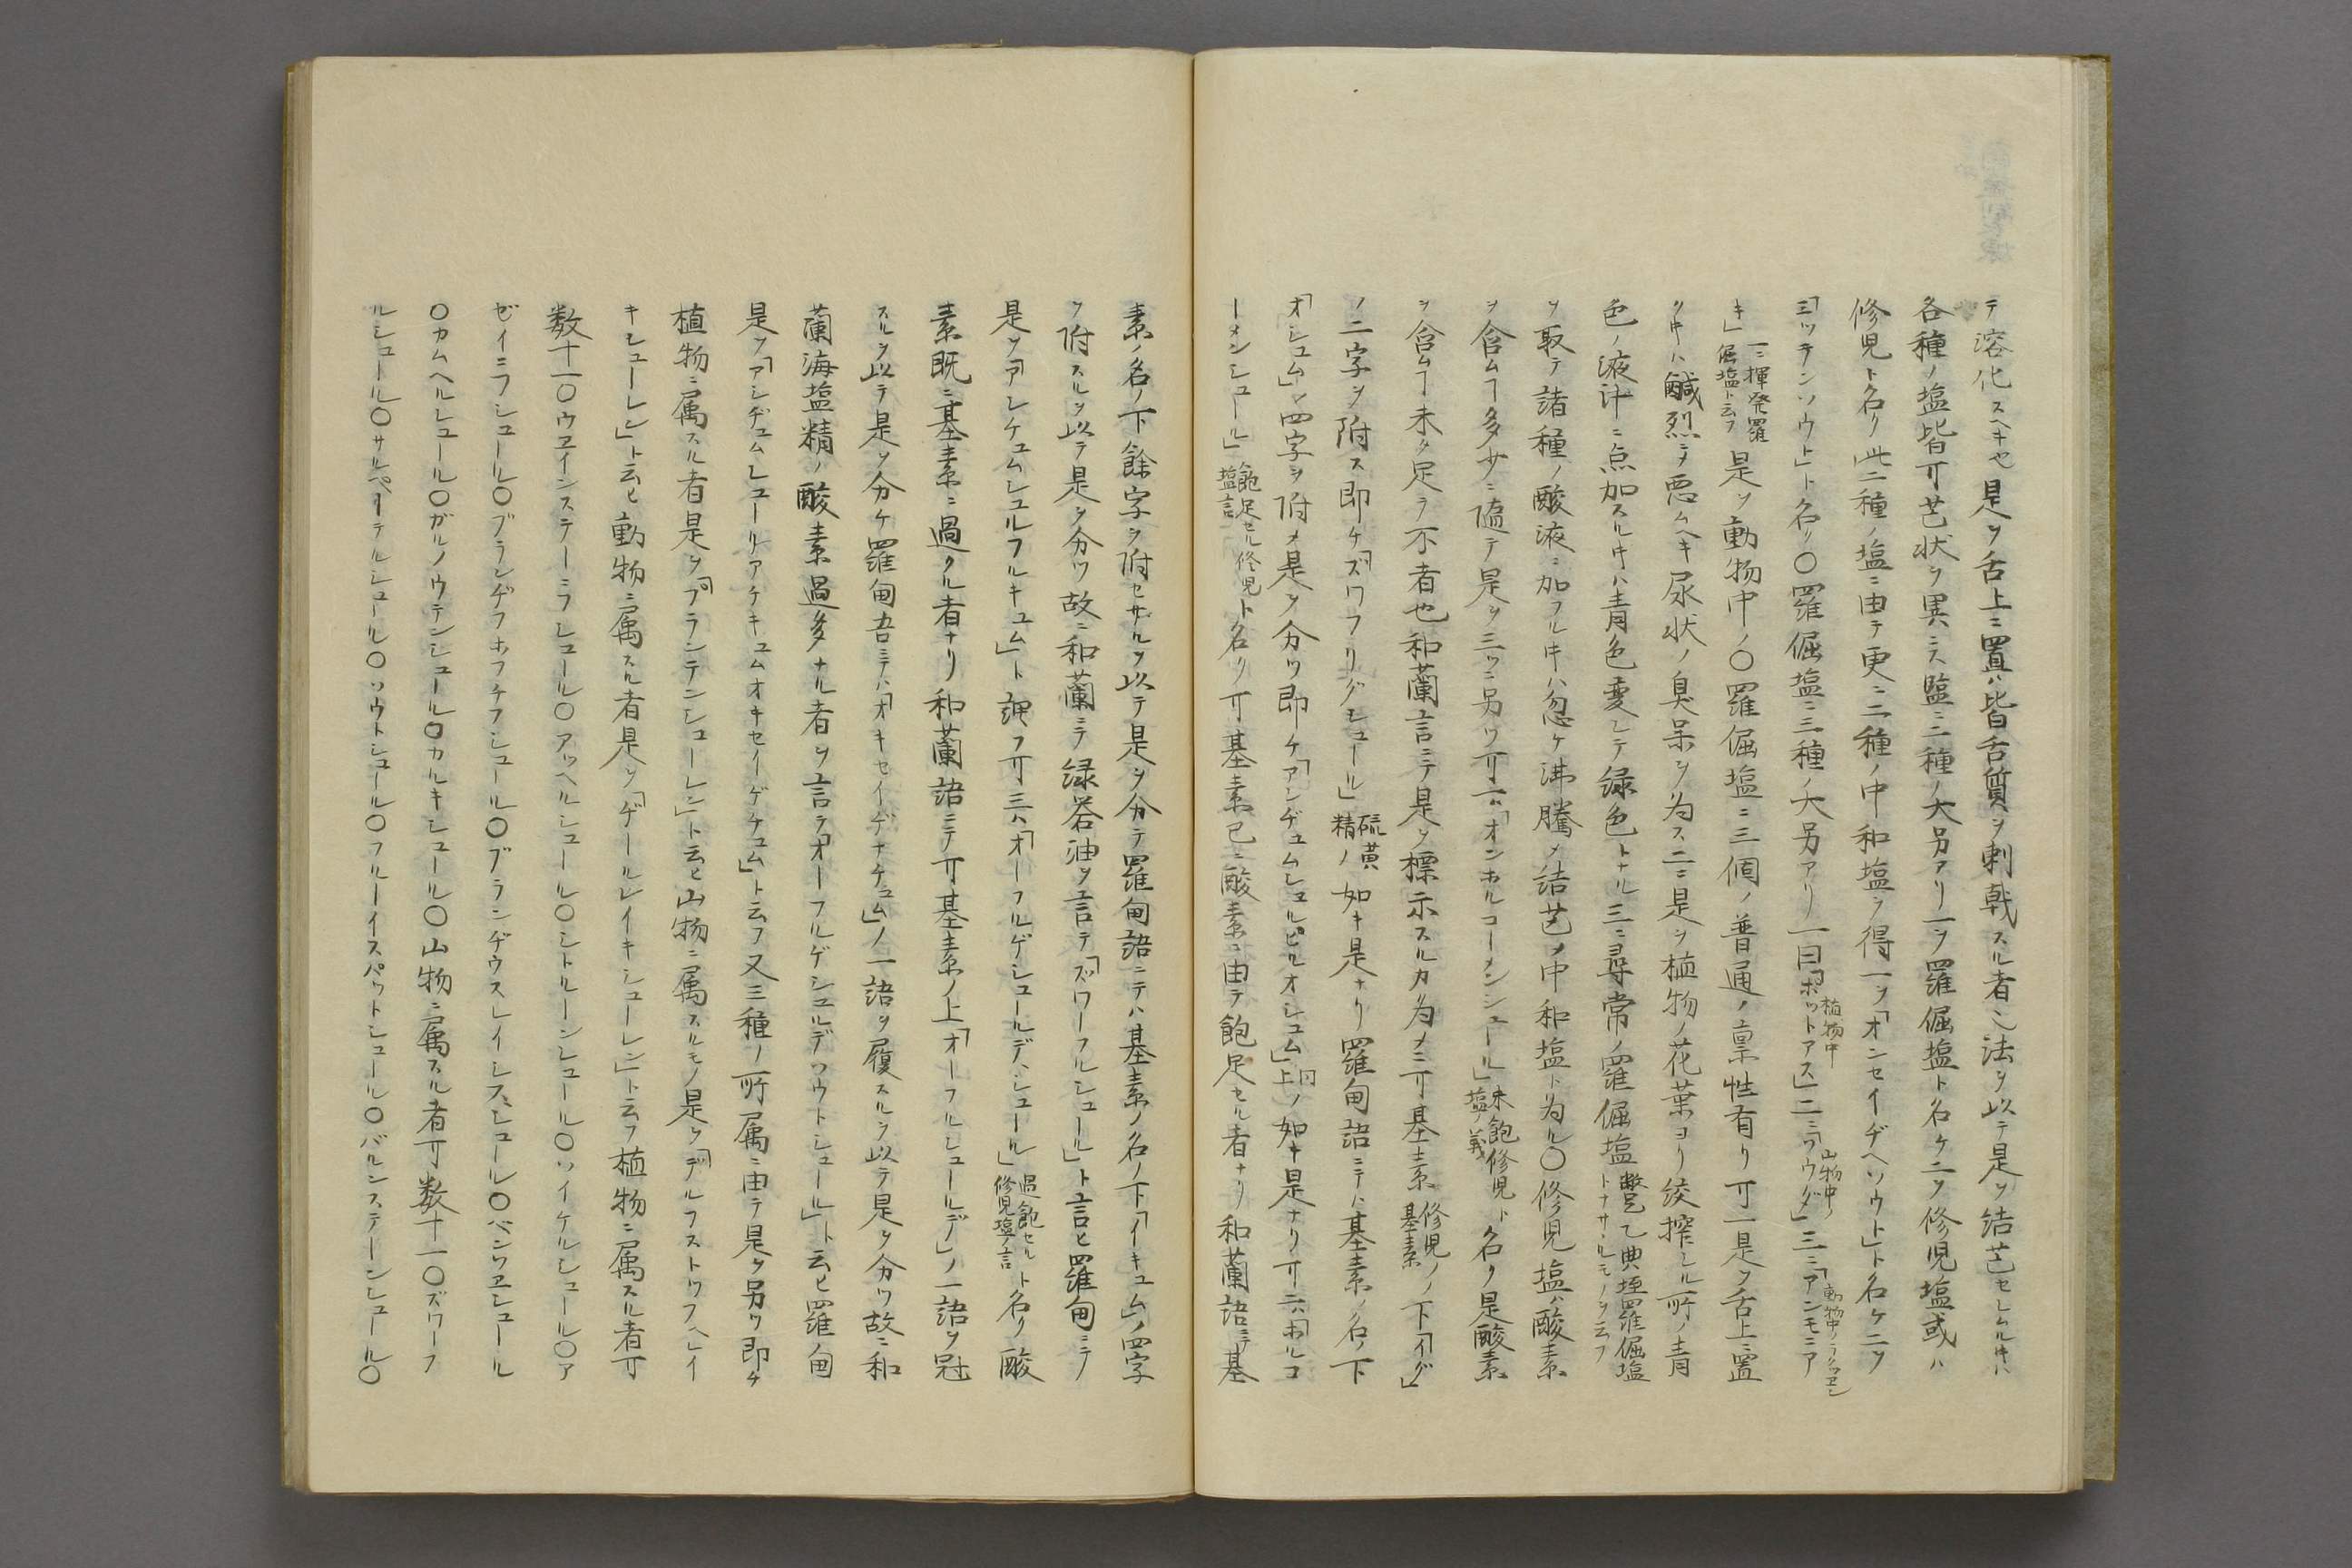 テ溶化スヘキ也是ヲ舌上ニ置ハ皆舌質ヲ刺戟スル者ニ法ヲ以テ是ヲ結芒セシムル𪜈ハ
各種ノ塩皆可芒状ヲ異ニス塩ニ二種ノ大另アリ一ヲ羅倔塩ト名ケ二ヲ修児塩或ハ
修児ト名ク此二種ノ塩ニ由テ更ニ二種ノ中和塩ヲ得一ヲ「オンセイヂヘソウト」ト名ケ二ヲ
「ミッテンソウト」ト名ク〇羅倔塩ニ三種ノ大另アリ一曰「ポットアス」植物中二ニ「ソウダ」山物中ノ三ニ「アンモニア
キ」一ニ揮発羅倔塩ト云フ是ヲ動物中ノ〇羅倔塩ニ三個ノ普通ノ稟性有リ可一是ヲ舌上ニ置
ク𪜈ハ鹹烈ニテ悪ムヘキ尿状ノ臭呆ヲ為ス二ニ是ヲ植物ノ花葉ヨリ絞搾シル所ノ青
色ノ液汁ニ点加スル𪜈ハ青色変シテ緑色トナル三ニ尋常ノ羅倔塩
ヲ取テ諸種ノ酸液ニ加フル𪜈ハ忽ケ沸騰メ結芒メ中和塩ト為ル〇修児塩ハ酸素
ヲ含ムヿ多少ニ隨テ是ヲ三ツニ另ツ可一ハ「オンホルコーメンシュール」未飽修児塩ノ義ト名ク是酸素
ヲ含ムヿ未タ足ラ不者也和蘭言ニテ是ヲ標示スルカ為メニ可基素修児ノ基素ノ下「イグ」
ノ二字ヲ附ス即ケ「ズワフリグシュール」硫黄精ノ如キ是ナリ羅甸語ニテハ基素ノ名ノ下
「オシュム」ノ四字ヲ附メ是ヲ分ツ即ケ「アシヂュムシュルピルオシュム」同上ノ如キ是ナリ可二ハ「ホルコ
ーメンシュール」飽足セル修児塩言ト名ク可基素已ニ酸素ニ由テ飽足セル者ナリ和蘭語ニテ基
素ノ名ノ下餘字ヲ附セザルヲ以テ是ヲ分テ羅甸語ニテハ基素ノ名ノ下「イキュム」ノ四字
ヲ附スルヲ以テ是ヲ分ツ故ニ和蘭ニテ緑礬油ヲ言テ「ズワーフルシュール」ト言ヒ羅甸ニテ
是ヲ「アシケュムシュルフルキュム」ト謂フ可三ハ「オーフルゲシュールデ、シュール」過飽セル修児塩ノ言ト名ク酸
素既ニ基素ニ過クル者ナリ和蘭語ニテ可基素ノ上「オーフルシュールデ」ノ一語ヲ冠
スルヲ以テ是ヲ分ケ羅甸吾ニテハ「オキセイゲナチュム」ノ一語ヲ履スルヲ以テ是ヲ分ツ故ニ和
蘭海塩精ノ酸素過多ナル者ヲ言テ「オーフルゲシュルデソウトシュール」ト云ヒ羅甸
是ヲ「アシヂュムレユーリアチキュムオキセイーゲチュム」ト云フ又三種ノ所属ニ由テ是ヲ另ク即ケ
植物ニ属スル者是ヲ「プランテンシューレン」ト云ヒ山物ニ属スルモノ是ヲ「デルフストワフヘレイ
キシューレン」ト云ヒ動物ニ属スル者是ヲ「ヂールレイキシューレン」ト云フ植物ニ属スル者可
数十一〇ウヱインステーニフシュール〇アッヘルシュール〇シトルーンシュール〇ソイケルシュール〇ア
ゼイニフシュール〇ブランヂフホフチフシュール〇ブランヂウスレイシズシュール〇ベンツヱシュール
〇カムヘルシュール〇ガルノウテンシュール〇カルキシュール〇山物ニ属スル者可数十一〇ズワーフ
ルシュール〇サルペイテルシュール〇ソウトシュール〇フルーイスパットシュール〇バルンステーンシュール〇